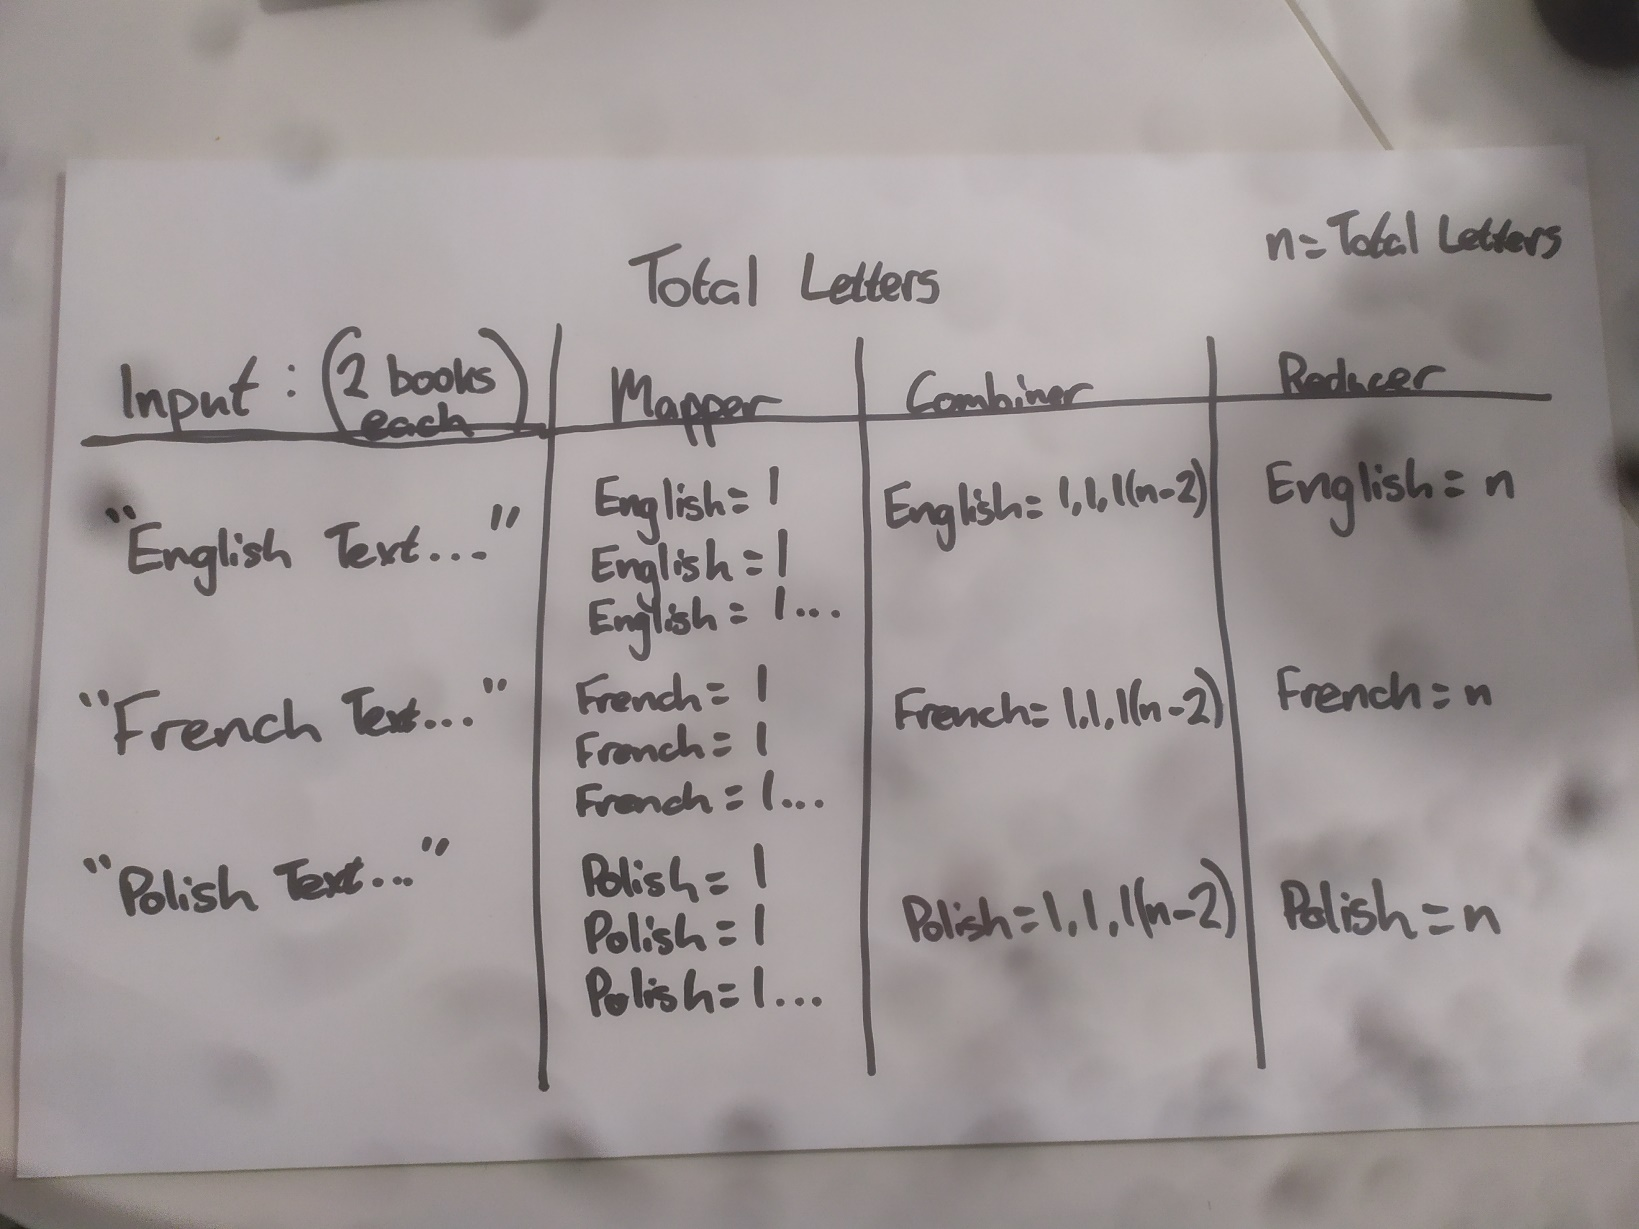 n=Total Letters
Total Letters
Input: (2 books each)
Mapper
Combiner
Reducer
"English Text..."
English=1
English=1
English=1...
English=1,1,1(n-2)
English=n
"French Text..."
French=1
French=1
French=1...
French=1,1,1(n-2)
French=n
"Polish Text..."
Polish=1
Polish=1
Polish=1...
Polish=1,1,1(n-2)
Polish=n